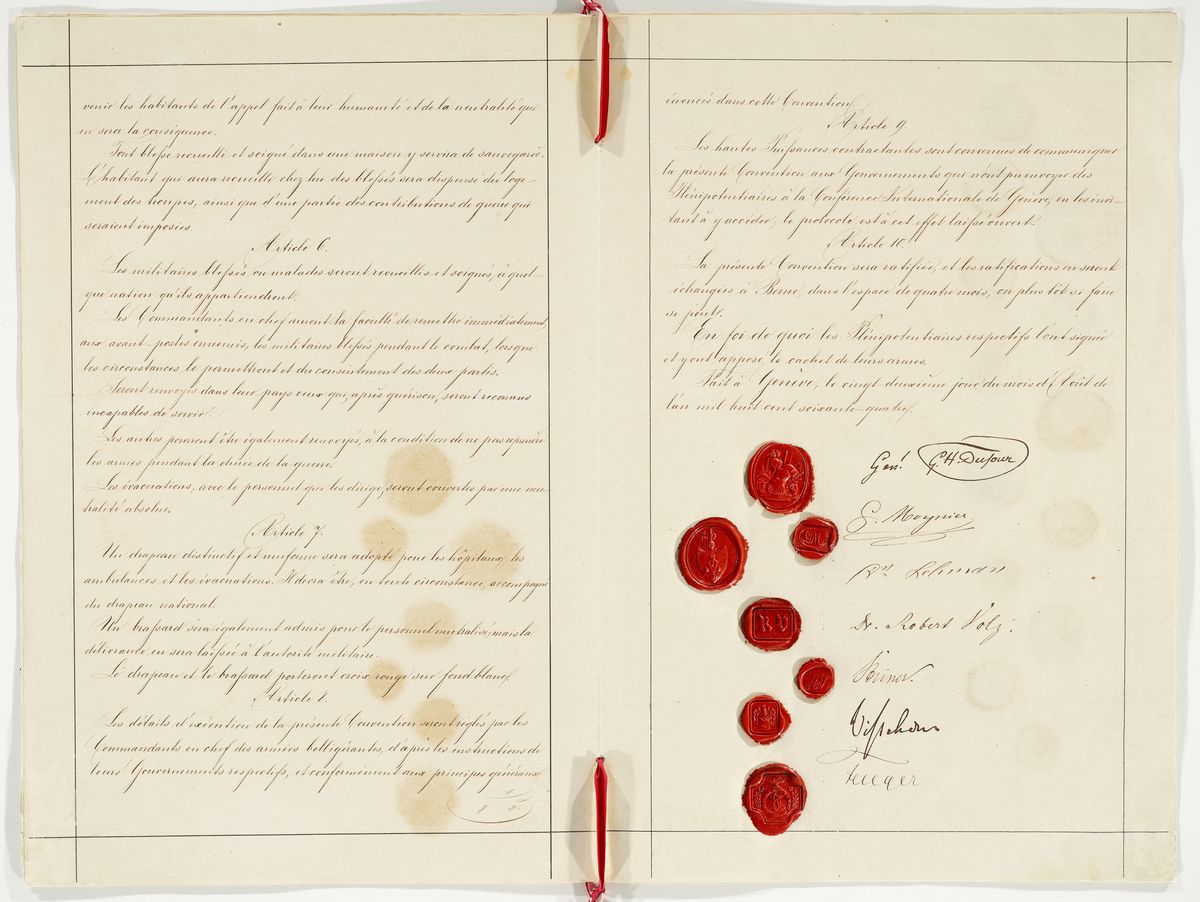 venir les habitants de l'appel fait à leur humanité et de la neutralité qui
en sera la conséquence.
Tout blessé recueilli et soigné dans une maison y servira de sauvegarde.
L'habitant qui aura recueilli chez lui des blessés sera dispensé du loge-
ment des troupes, ainsi que d'une partie des contributions de guerre qui
seraient imposées.
Article 6.
Les militaires blessés ou malades seront recueillis et soignés, à quel-
que nation qu'ils appartiendront.
Les Commandants en chef auront la faculté de remettre immédiatement,
aux avant-postes ennemis, les militaires blessés pendant le combat, lorsque
les circonstances le permettront et du consentement des deux partis.
Seront renvoyés dans leur pays ceux qui, après guérison, seront reconnus
incapables de servir.
Les autres pourront être également renvoyés, à la condition de ne pas reprendre
les armes pendant la durée de la guerre.
Les évacuations, avec le personnel qui les dirige, seront couvertes par une neu-
tralité absolue.
Article 7.
Un drapeau distinctif et uniforme sera adopté pour les hôpitaux, les
ambulances et les évacuations. Il devra être, en toute circonstance, accompagné
du drapeau national.
Un brassard sera également admis pour le personnel neutralisé; mais la
délivrance en sera laissée à l'autorité militaire.
Le drapeau et le brassard porteront croix rouge sur fond blanc.
Article 8.
Les détails d'exécution de la présente Convention seront réglés par les
Commandants en chef des armées belligérantes, d'après les instructions de
leurs Gouvernements respectifs, et conformément aux principes généraux
énoncés dans cette Convention.
Article 9
Les hautes Puissances contractantes sont convenues de communiquer
la présente Convention aux Gouvernements qui n'ont pu envoyer des
Plénipotentiaires à la Conférence Internationale de Genève, en les invi-
tant à y accéder; le protocole est à cet effet laissé ouvert.
Article 10.
La présente Convention sera ratifiée, et les ratifications en seront
échangées à Berne, dans l'espace de quatre mois, ou plus tôt si faire
se peut.
En foi de quoi les Plénipotentiaires respectifs l'ont signée
et y ont apposé le cachet de leurs armes.
Fait à Genève, le vingt deuxième jour du mois d'Août de
l'an mil huit cent soixante-quatre.
Gén.l G. H. Dufour
G. Moynier
Dr. Lehmann
Dr. Robert Volz.
Steiner.
Visschers
M
RV